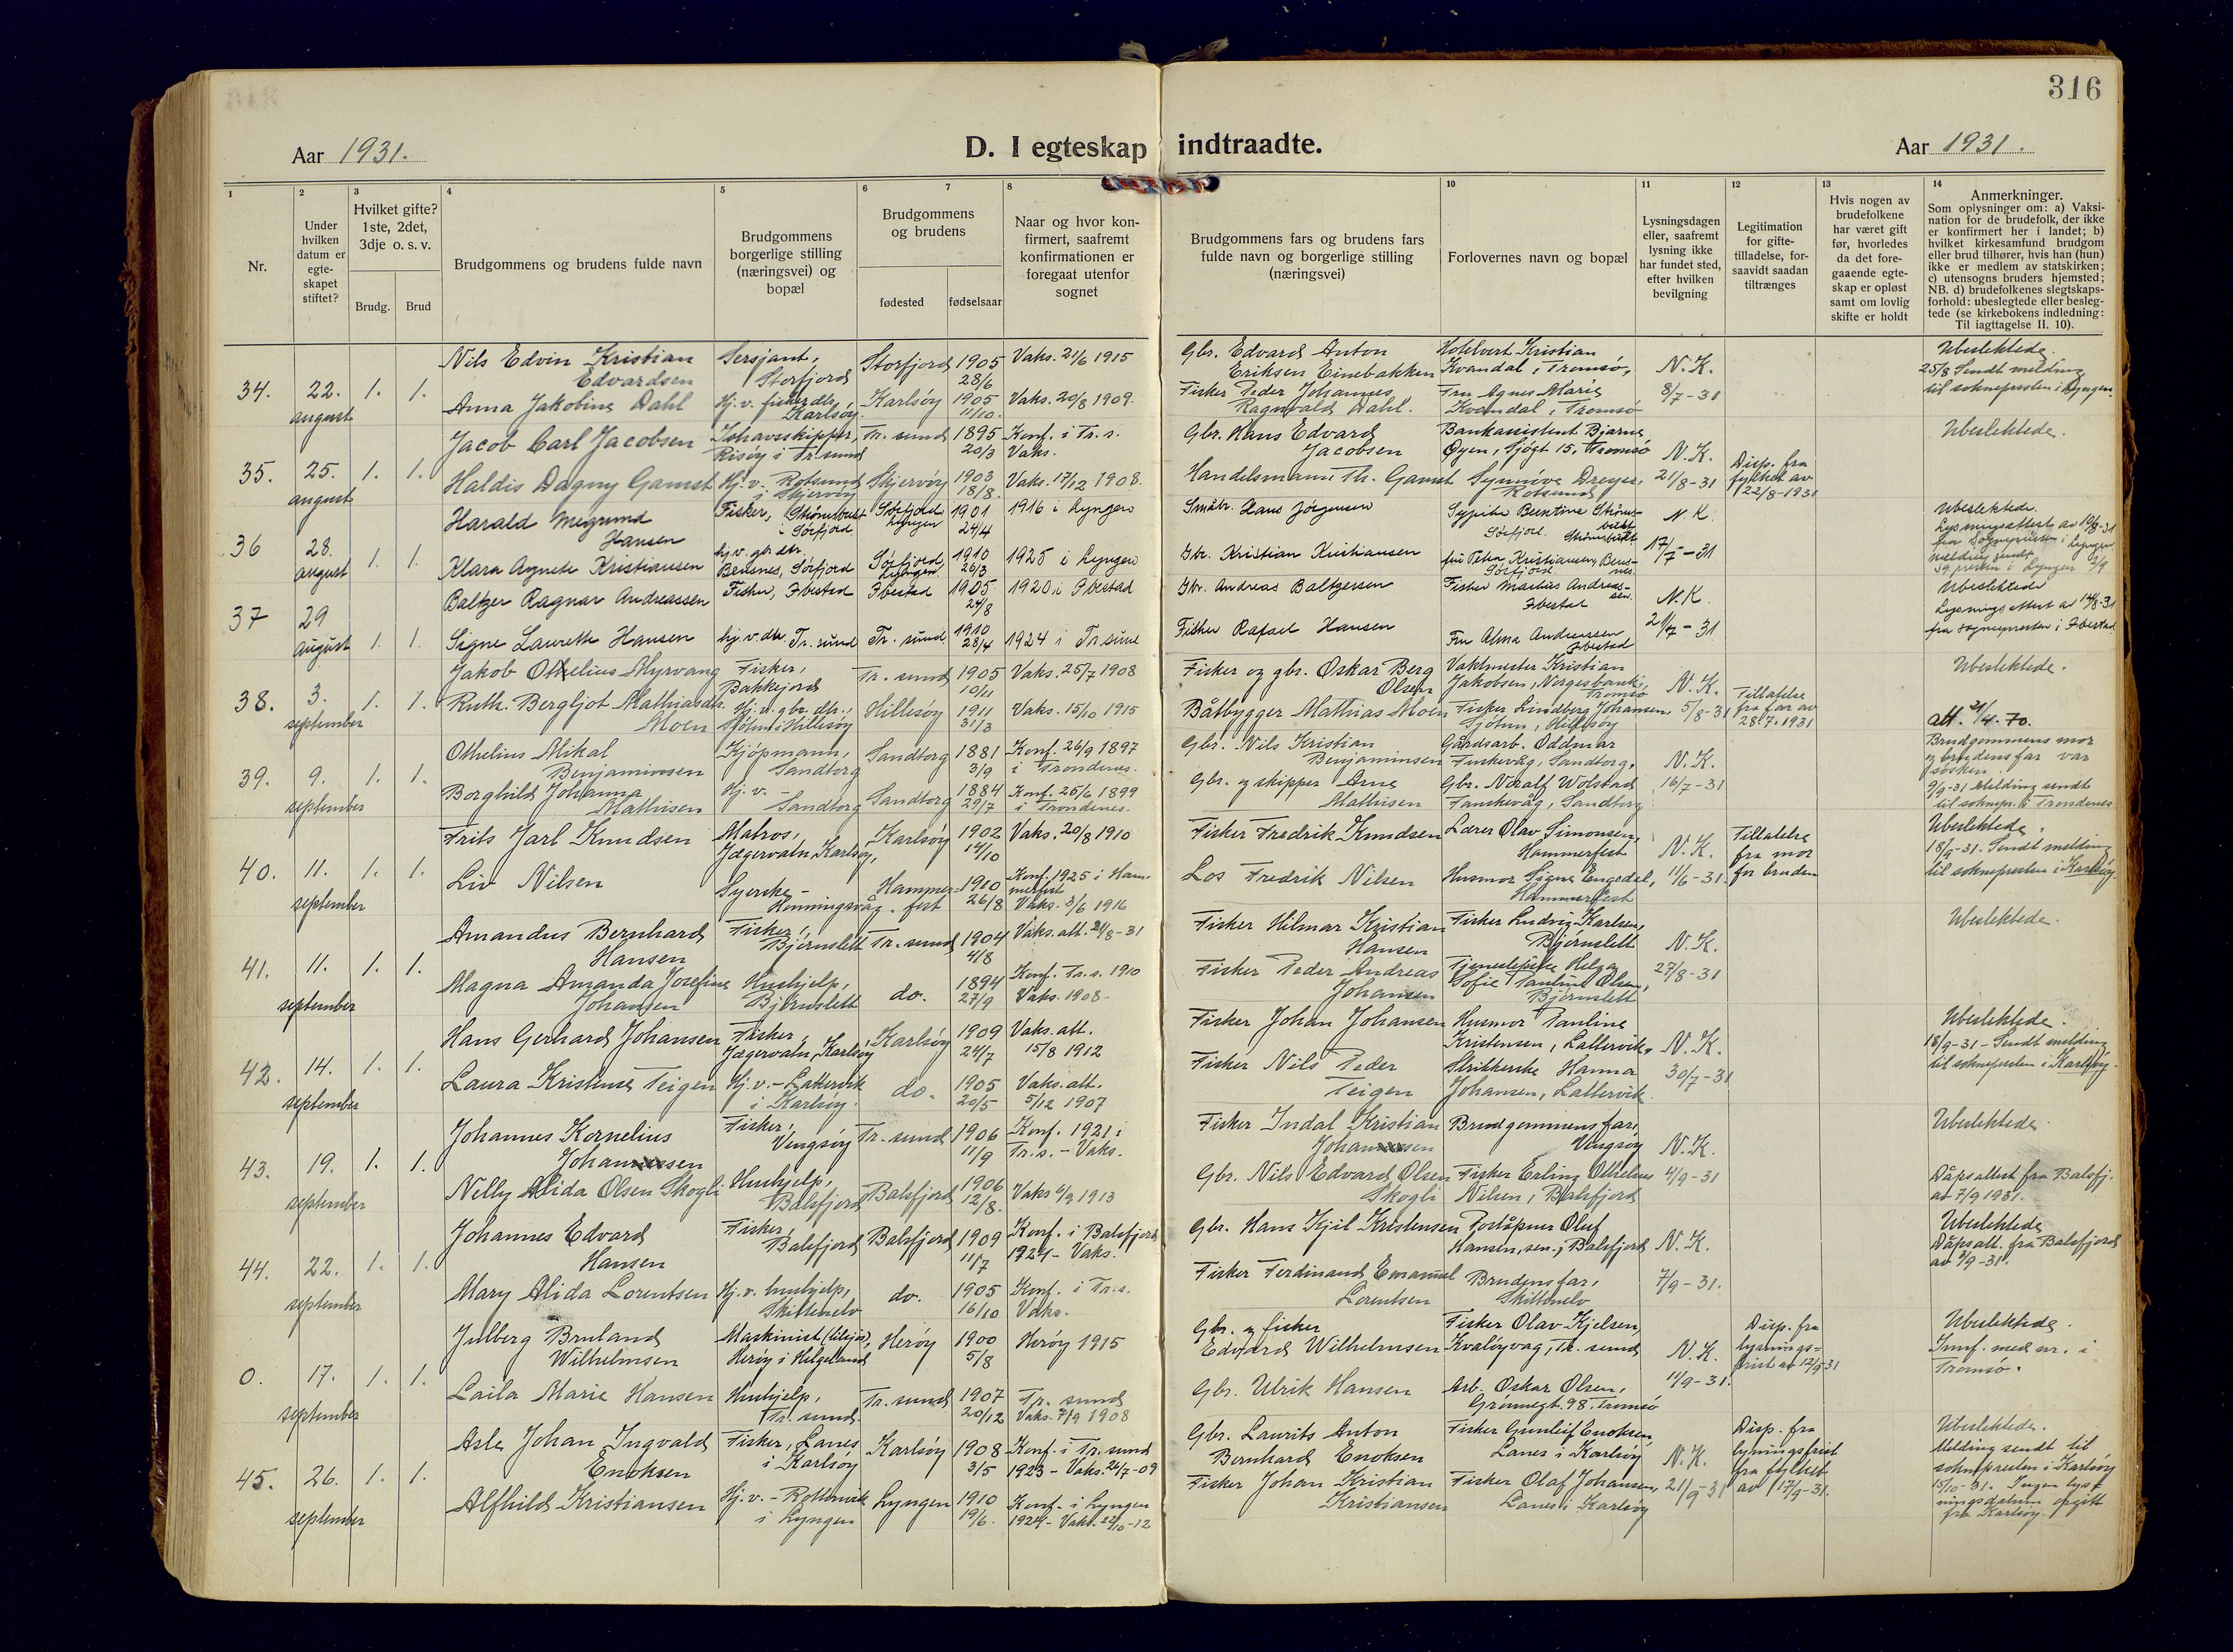 316
Aar 1931.
D. I egteskap indtraadte.
Aar 1931.
1
2
3
4
5
6
7
8
10
11
12
13
14
Nr.
Under
hvilken
datum er
egte-
skapet
stiftet?
Hvilket gifte?
1ste, 2det,
3dje o. s. v.
Brudg.
Brud
Brudgommens og brudens fulde navn
Brudgommens
borgerlige stilling
(næringsvei) og
bopæl
Brudgommens
og brudens
fødested
fødselsaar
Naar og hvor kon-
firmert, saafremt
konfirmationen er
foregaat utenfor
sognet
Brudgommens fars og brudens fars
fulde navn og borgerlige stilling
(næringsvei)
Forlovernes navn og bopæl
Lysningsdagen
eller, saafremt
lysning ikke
har fundet sted,
efter hvilken
bevilgning
Legitimation
for gifte-
tilladelse, for-
saavidt saadan
tiltrænges
Hvis nogen av
brudefolkene
har været gift
før, hvorledes
da det fore-
gaaende egte-
skap er opløst
samt om lovlig
skifte er holdt
Anmerkninger.
Som oplysninger om: a) Vaksi-
nation for de brudefolk, der ikke
er konfirmert her i landet; b)
hvilket kirkesamfund brudgom
eller brud tilhører, hvis han (hun)
ikke er medlem av statskirken;
c) utensogns bruders hjemsted;
NB. d) brudefolkenes slegtskaps-
forhold: ubeslegtede eller besleg-
tede (se kirkebokens indledning:
Til iagttagelse II. 10).
34. 22. august 1. 1.
Nils Edvin Kristian Edvardsen
Sersjant, Storfjord
Storfjord 1905 28/6
Vaks. 21/6 1915
Gbr. Edvard Anton Eriksen Einebakken
Hotelvert Kristian Kvandal i Tromsø,
N. K. 8/7-31
Ubeslektede.
25/8 Sendt melding
til soknepresten i Lyngen.
Anna Jakobine Dahl
Hj. v. fiskerdtr, Karlsøy
Karlsøy 1905 11/10.
Vaks. 20/8 1909.
Fisker Peder Johannes Ragnvald Dahl.
Fru Agnes Marie Kvandal i Tromsø
35. 25. august 1. 1.
Jacob Carl Jacobsen
Ishavsskipper, Risøy i Tr. sund
Tr. sund 1895 20/3
Konf. i Tr. s. Vaks.
Gbr. Hans Edvard Jacobsen
Bankassistent Bjarne Øyen, Sjøgt 15, Tromsø
N. K. 21/8-31
Disp. fra
fylket av
22/8-1931
Ubeslektede.
Haldis Dagny Gamst
Hj. v. Rotsund i Skjervøy
Skjervøy 1903 18/8.
Vaks. 17/12 1908.
Handelsmann Th. Gamst
Synnøve Dreyer, Rotsund
36 28. august 1. 1.
Harald Hansen
Fisker, Strømsbukt i Sørfjord
Sørfjord Lyngen 1901 24/4
1916 i Lyngen
Småbr. Hans Jørgensen
Sypike Berntine Strømsbukt Sørfjord.
N. K. 17/7-31
Ubeslektede.
Lysningsattest av 10/8-31
fra Sognepresten i Lyngen
melding sendt
sg. presten i Lyngen 2/9
Klara Agnete Kristiansen
hj. v. gbr dtr. Berenes, Sørfjord
Sørfjord, Lyngen. 1910 26/3
1925 i Lyngen
Gbr. Kristian Kristiansen
fru Petra Kristiansen, Sørfjord
37 29 august 1. 1.
Baltzer Ragnar Andreassen
Fisker, Ibestad
Ibestad 1905 24/8
1920 i Ibestad
Gbr. Andreas Baltzersen
Fisker Marius Andreassen. Ibestad
N. K. 21/7-31
Ubeslektede
Lysningsattest av 14/8-31
fra sognepresten i Ibestad
Signe Laurette Hansen
hj. v. dtr. Tr. sund
Tr. sund. 1910 28/4
1924 i Tr. sund
Fisker Rafael Hansen
Fru Alma Andreassen Ibestad
38. 3. september 1. 1.
Jakob Othelius Myrvang
Fisker, Bakkejord
Tr. sund 1905 10/11
Vaks. 25/7 1908
Fisker og gbr. Oskar Berg Olsen
Vaktmester Kristian Jakobsen, Norgesbank, Tromsø
N. K. 5/8-31
Tillatelse
fra far av
28.7.1931
Ubeslektede.
att. 21/4. 70.
Ruth Bergljot Mathiasdtr. Moen
Hj. v. gbr. dtr., Sjøtun i Hillesøy
Hillesøy 1911 31/3
Vaks. 15/10 1915
Båtbygger Mathias Moen
Fisker Lindberg Johansen, Sjøtun, Hillesøy
39. 9. september 1. 1.
Othelius Mikal Benjaminsen
Kjøpmann, Sandtorg
Sandtorg 1881 3/9
Konf. 26/9 1897 i Trondenes.
Gbr. Nils Kristian Benjaminsen
Gårdsarb. Oddmar Fuskevåg, Sandtorg.
N. K. 16/7-31
Brudgommens mor
og brudens far var
søsken.
9/9-31 Melding sendt
til soknepr. til Trondenes
Borghild Johanna Mathisen
Hj. v. - Sandtorg
Sandtorg 1884 29/7
Konf. 25/6 1899 i Trondenes.
Gbr. og skipper Arne Mathisen
Gbr. Noralf Wolstad Fauskevåg, Sandtorg
40. 11. september 1. 1.
Frits Jarl Knudsen
Matros, Jægervatn, Karlsøy,
Karlsøy 1902 14/10
Vaks. 20/8 1910
Fisker Fredrik Knudsen
Lærer Olav Simonsen, Hammerfest
N. K. 11/6-31.
Tillatelse
fra mor
for bruden
Ubeslektede.
18/9-31. Sendt melding
til soknepresten i Karlsøy.
Liv Nilsen
Syerske - Honningsvåg.
Hammerfest 1910 26/8
Konf. 1925 i Hammerfest Vaks. 3/6 1916
Los Fredrik Nilsen
Husmor Signe Engedal, Hammerfest
41. 11. september 1. 1.
Amandus Bernhard Hansen
Fisker, Bjørnslett
Tr. sund 1904 4/8
Vaks. att. 21/8-31
Fisker Hilmar Kristian Hansen
Fisker Ludvig Karlsen, Bjørnslett
N. K. 27/8-31
Ubeslektede.
Magna Amanda Josefine Johansen
Hushjelp, Bjørnslett
do. 1894 27/9
Konf. Tr. s. 1910 Vaks. 1908.
Fisker Peder Andreas Johansen
Tjenestepike Helga Sofie Pauline Olsen, Bjørnslett
42. 14. september 1. 1.
Hans Gerhard Johansen
Fisker, Jægervatn, Karlsøy
Karlsøy 1909 24/7
Vaks. att. 15/8 1912
Fisker Johan Johansen
Husmor Pauline Kristensen, Lattervik,
N. K. 30/7-31
Ubeslektede.
18/9-31 - Sendt melding
til soknepresten i Karlsøy.
Laura Kristense Teigen
Hj. v. - Lattervik i Karlsøy.
do. 1905 20/5
Vaks. att. 5/12 1907
Fisker Nils Peder Teigen
Strikkerske Hanna Johansen, Lattervik.
43. 19. september 1. 1.
Johannes Kornelius Johansen
Fisker, Vengsøy
Tr. sund 1906 11/9
Konf. 1921 i Tr. s. - Vaks.
Fisker Indal Kristian Johansen
Brudgommens far, Vengsøy
N. K. 4/9-31
Ubeslektede.
Dåpsattest fra Balsfj.
av 7/9 1931.
Nelly Alida Olsen Skogli
Hushjelp, Balsfjord
Balsfjord 1906 12/8.
Vaks 6/9 1913
Gbr. Nils Edvard Olsen Skogli
Fisker Erling Othelius Nilsen, Balsfjord
44. 22. september 1. 1.
Johannes Edvard Hansen
Fisker, Balsfjord
Balsfjord 1909 11/7
Konf. i Balsfjord 1924 - Vaks.
Gbr. Hans Kjil Kristensen
Poståpner Oluf Hansen, sen., Balsfjord
N. K. 7/9-31.
Ubeslektede
Dåpsatt. fra Balsfjord
av 3/9-31.
Mary Alida Lorentsen
Hj. v. hushjelp, Skittenelv
do. 1905 16/10
Konf. i Tr. s. Vaks.
Fisker Ferdinand Emanuel Lorentsen
Brudens far, Skittenelv
0. 17. september 1. 1.
Julberg Bruland Wilhelmsen
Maskinist (tilsjøs), Herøy i Helgeland
Herøy 1900 5/8
Herøy 1915
Gbr. og fisker Edvard Wilhelmsen
Fisker Olav Kjelsen, Kvaløyvåg, Tr. sund
N. K. 11/9-31.
Disp. fra
lysnings-
frist av 12/9-31
Ubeslektede.
Innf. med nr. i
Tromsø.
Laila Marie Hansen
Hushjelp, Tr. sund.
Tr. sund 1907 20/12
Tr. sund Vaks. 7/9 1908
Gbr. Ulrik Hansen
Arb. Oskar Olsen, Grønnegt. 98. Tromsø
45. 26. september 1. 1.
Asle Johan Ingvald Enoksen
Fisker, Lanes i Karlsøy
Karlsøy 1908 3/5
Konf. i Tr. sund 1923 - Vaks. 24/7-09
Gbr. Laurits Anton Bernhard Enoksen
Fisker Gunleif Enoksen, Lanes i Karlsøy
N. K. 21/9-31
Disp. fra
lysningsfrist
fra fylket
av 17/9-31.
Ubeslektede.
Melding sendt til
soknepresten i Karlsøy
15/10-31. Ingen lys-
ningsdatum opgitt
fra Karlsøy.
Alfhild Kristiansen
Hj. v. - Rottenvik i Lyngen
Lyngen 1910 19/6.
Konf. i Lyngen 1924 - Vaks. 22/10-12
Fisker Johan Kristian Kristiansen
Fisker Olaf Johansen, Lanes i Karlsøy